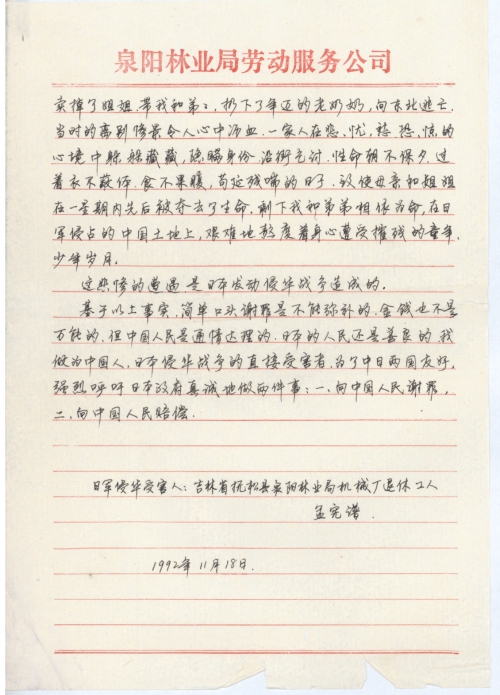 泉阳林业局劳动服务公司
卖掉了姐姐,带我和弟弟,扔下了年迈的老奶奶,向东北逃亡
当时的离别情景令人心中流血.一家人在悲、忧、愁、恐、惊的
心境中躲躲藏藏,隐瞒身份,沿街乞讨.性命朝不保夕.过
着衣不蔽体.食不果腹,苟延残喘的日子.致使母亲和姐姐
在一星期内先后被夺去了生命.剩下我和弟弟相依为命,在日
军侵占的中国土地上,艰难地熬度着身心遭受摧残的童年.
少年岁月.
这悲惨的遭遇是日本发动侵华战争造成的.
基于以上事实,简单口头谢罪是不能弥补的.金钱也不是
万能的.但中国人民是通情达理的.日本的人民还是善良的.我
做为中国人.日本侵华战争的直接受害者.为了中日两国友好,
强烈呼吁日本政府真诚地做两件事:一、向中国人民谢罪.
二、向中国人民赔偿.
日军侵华受害人:吉林省抚松县泉阳林业局机械厂退休工人
孟宪谱.
1992年11月18日.